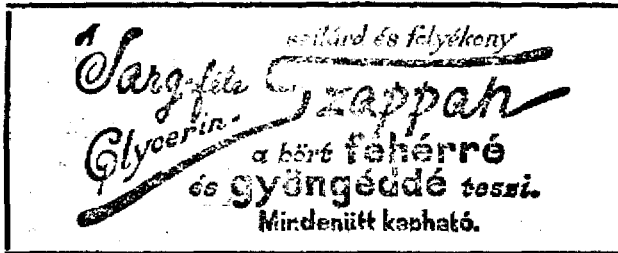 A
szilárd és folyékony
Sarg-féle
Glycerin-
Szappan
a bőrt fehérré
és gyöngéddé teszi.
Mindenütt kapható.